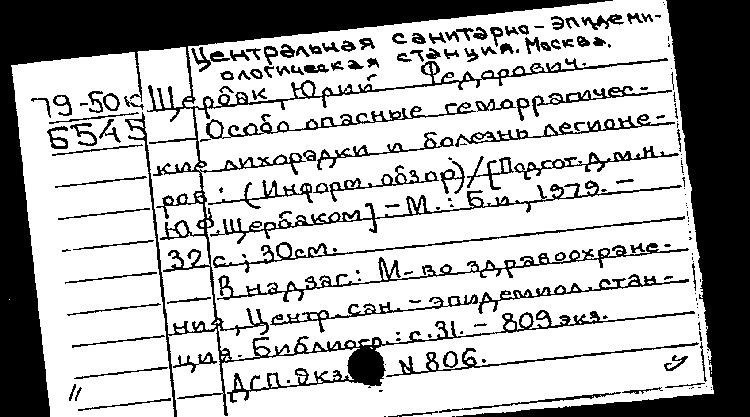 Центральная санитарно-эпидеми-
ологическая станция. Москва.
79-50ю Щербак, Юрий Федорович.
6545 Особо опасные геморрагичес-
кие лихорадки и болезнь легионе-
ров : (Информ. обзор)/[Подгот. д.м.н.
Ю.Ф.Щербаком]. - М. : Б.и., 1979. -
32 с.; 30см.
В надзаг.: М-во здравоохране-
ния, Центр. сан. - эпидемиол. стан-
ция. Библиогр.: с.31. - 809 экз.
Дсп. Экз. N 806.